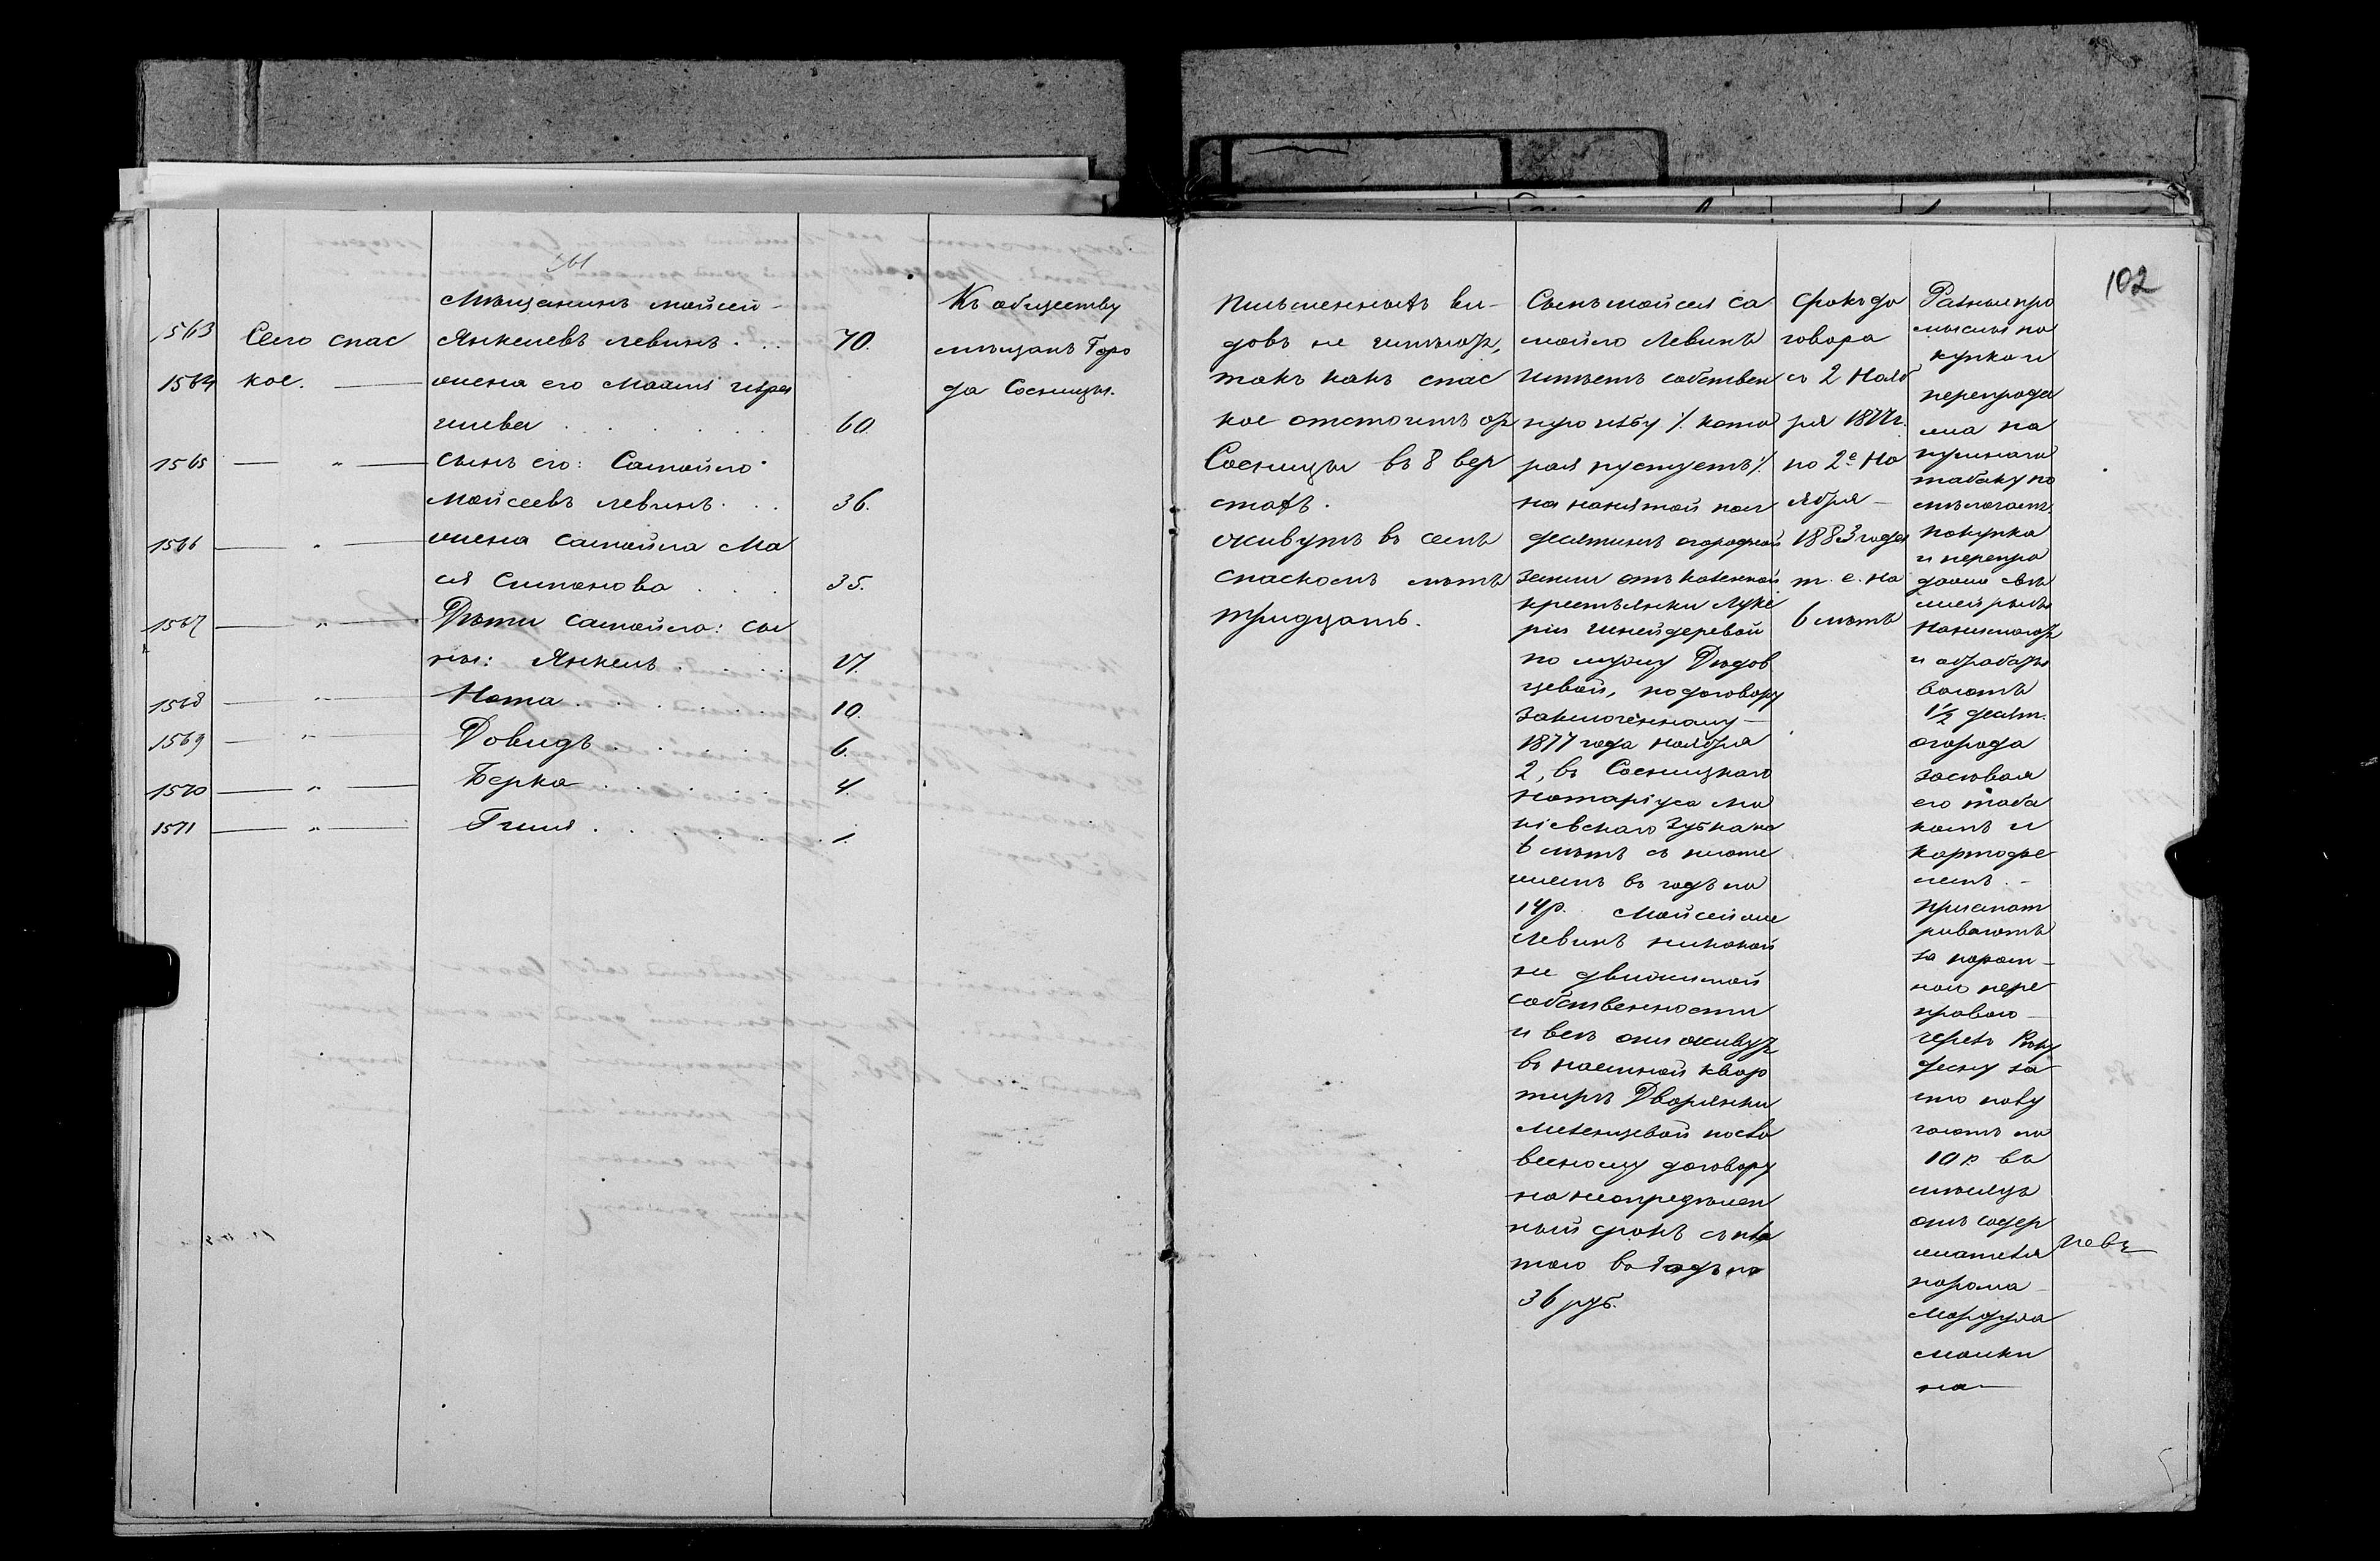 102
Мѣщанинъ Мойсей
1563 Село Спас
Янкелевъ Левинъ 70.
1564 кое.
жена его
60.
1565 — " —
сынъ его: Самойло
Мойсеевъ Левинъ 36.
1566 — " —
жена Самойла Ма
ся Симонова 35.
1567 — " —
Дѣти Самойло: сы
ны: Янкель 17.
1568 — " — Нота 10.
1569 — " — Довидъ 6.
1570 — " — Берка 4.
1571 — " — 1.
Къ обществу
мѣщанъ Горо
да Сосницы.
Письменныхъ ви-
довъ не имѣютъ,
такъ какъ Спас
кое отстоитъ отъ
Сосницы въ 8 вер
стахъ.
Живутъ въ селѣ
Спаскомъ лѣтъ
тридцать.
Сынъ Мойсея Са
мойло Левинъ
имѣетъ собствен
ную избу /. кото
рая пустуетъ /.
на нанятой пол
десятинѣ огородной
земли отъ казенной
крестьянки Луке
ріи Шнейдеревой
по мужу Дѣдов
цевой, по договору
заключенному
1877 года Ноября
2, въ Сосницкаго
Нотаріуса Ма
кіевскаго Зубка на
6 лѣтъ съ плате
жемъ въ годъ по
14 р. Мойсей же
Левинъ никакой
не движимой
собственности
и всѣ они живутъ
въ наемной квар
тирѣ Дворянки
Лизенцевой по сло
весному договору
на неопредѣлен
ный срокъ съ пла
тою въ годъ по
36 руб.
Срокъ до
говора
съ 2 Нояб
ря 1877 г.
по 2е Но
ября
1883 года
т. е. на
6 лѣтъ
Разные про
мыслы по
купка и
перепрода
жа па
пушнаго
табаку по
мѣлочамъ.
покупка
и перепро
дажа свѣ
жей рыбы
Нанимаютъ
и обрабаты
ваютъ
1½ десят.
огорода
засѣвая
его таба
комъ и
картофе
лемъ. —
присмат
риваютъ
за паром-
ною пере
правою
черезъ Рѣку
Десну за
что полу
чаютъ по
10 р. въ
мѣсяцъ
отъ содер
жателя
парома
Мордуха